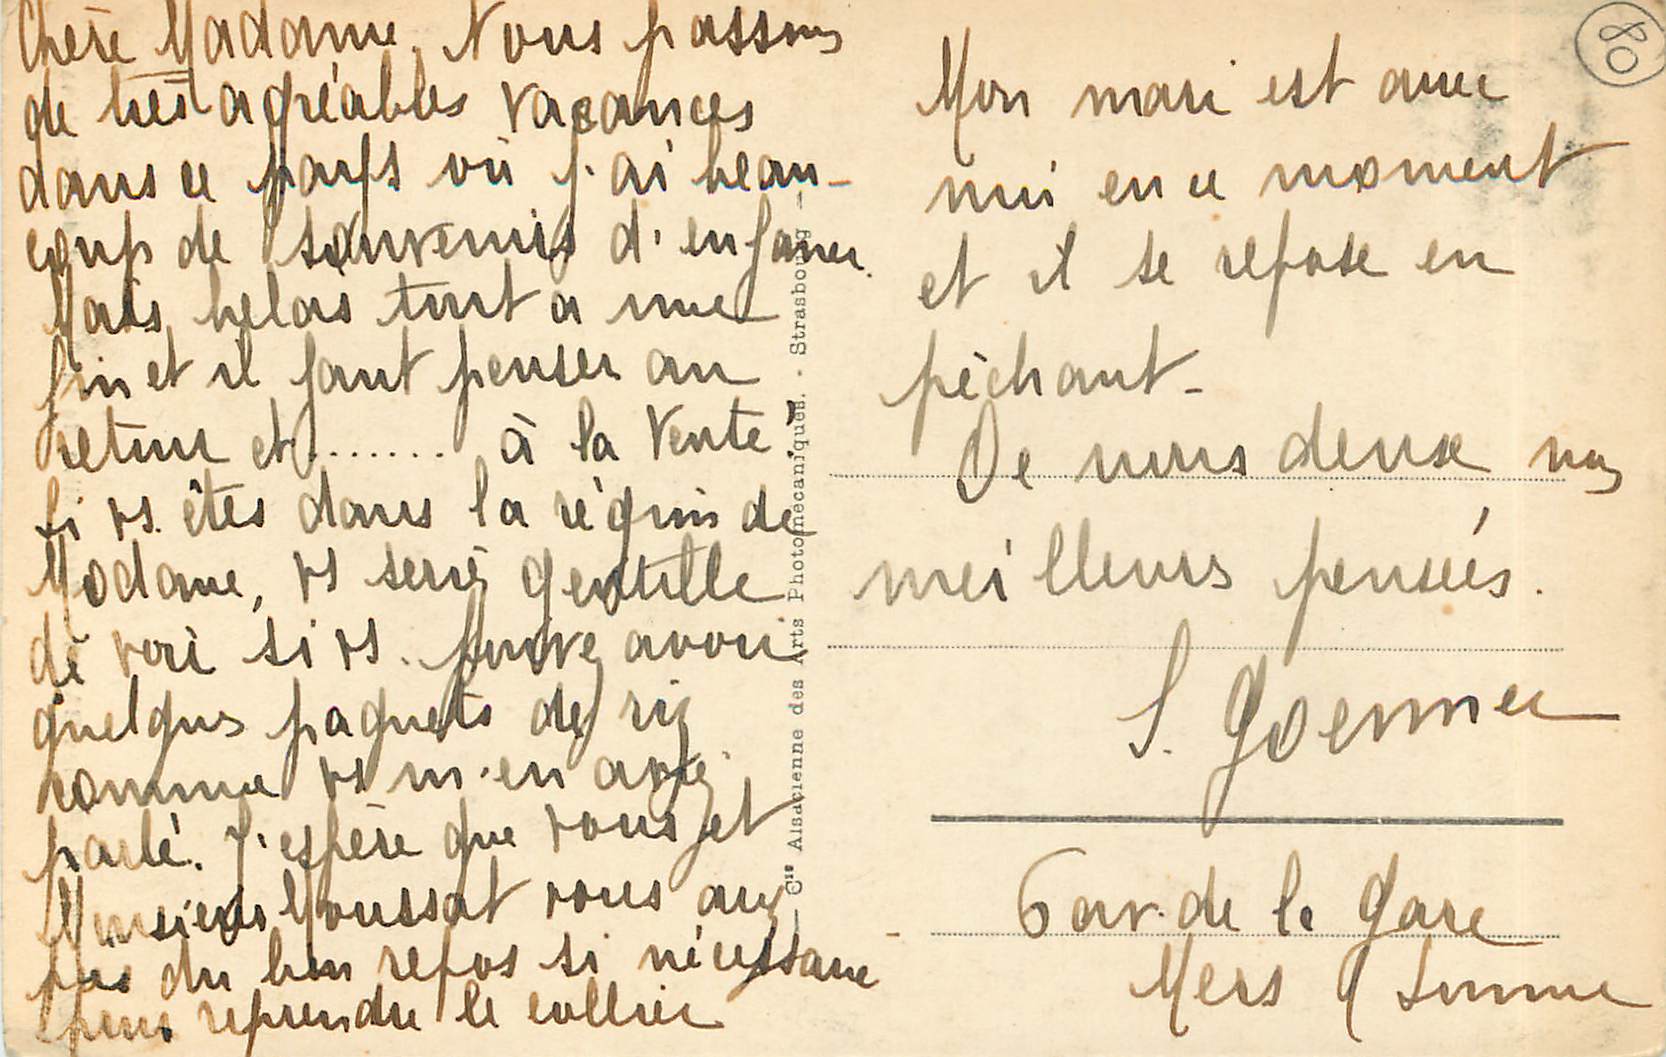 Chère Madame, Nous passons
de très agréables vacances
dans ce pays où j'ai beau-
coup de souvenirs d'enfance.
Mais hélas tout a une
fin et il faut penser au
retour et ........ à la Vente.
Si vs. êtes dans la région de
Modane, vs seriez gentille
de voir si vs. pouvez avoir
quelques paquets de riz
comme vs m'en aviez
parlé. J'espère que vous et
Monsieur Moussat vous avez
pris du bon repos si nécessaire
pour reprendre le collier
Mon mari est avec
moi en ce moment
et il se repose en
pêchant -
De nous deux nos
meilleurs pensées.
S.
6 av. de la Gare
Mers (Somme
80
Cie Alsacienne des Arts Photomécaniques. - Strasbourg